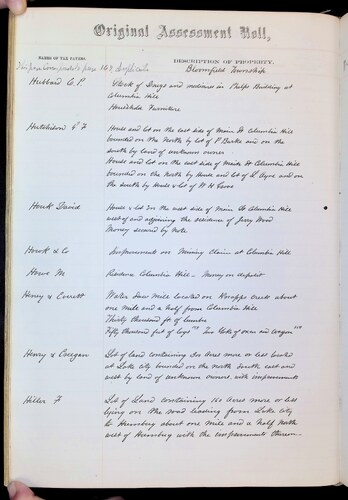 Original Assessment Roll,
NAMES OF TAX PAYERS.
DESCRIPTION OF PROPERTY.
page 167 duplicate
Bloomfield Township
Hubbard C. P.
Stock of Drugs and medicines in Phelps Building at
Columbia Hill
Household Furniture
Hutchison
House and lot on the east side of Main St Columbia Hill
bounded on the North by lot of P Burke and on the
south by land of unknown owner
House and lot on the east side of Main St Columbia Hill
bounded on the North by House and lot of Ayre and on
the South by House & lot of W H
Houk David
House & lot on the west side of Main St Columbia Hill
west of and adjoining the residence of Jerry Wood
Money secured by Note
& Co
Improvements on Mining Claim at Columbia Hill
Howe M
Residence Columbia Hill - Money on deposit
Henry & Everett
Water Saw mill located on Creek about
one mile and a half from Columbia Hill
Thirty thousand ft of lumber
Fifty thousand feet of logs Two Yoke of oxen and wagon
Henry &
Lot of land containing Acres more or less located
at Lake city bounded on the north south east and
west by land of unknown owners with improvements
Hiller F
Lot of Land containing 160 Acres more or less
lying on the road leading from Lake City
to Humbug about one mile and a half North
west of Humbug with the improvements thereon.